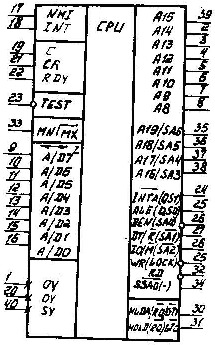 CPU
17 NMI
18 INT
19 C
21 CR
22 RDY
23 TEST
33 MN/MX
9 A/D7
10 A/D6
11 A/D5
12 A/D4
13 A/D3
14 A/D2
15 A/D1
16 A/D0
1 0V
20 0V
40 5V
A15 39
A14 2
A13 3
A12 4
A11 5
A10 6
A9 7
A8 8
A19/SA6 35
A18/SA5 36
A17/SA4 37
A16/SA3 38
INTA(QS1) 24
ALE(QS0) 25
DEN(SA0) 26
DT/R(SA1) 27
IO/M(SA2) 28
WR(LOCK) 29
RD 32
SSA0(-) 34
HLDA 30
HOLD 31